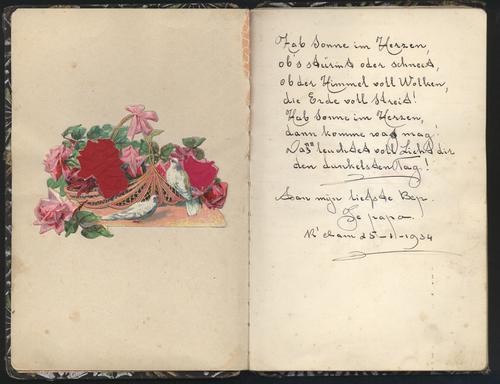 Hab Sonne im Herzen,
ob's stürmt oder schneet,
ob der Himmel voll Wolken,
die Erde voll Streit!
Hab Sonne im Herzen,
dann komme was mag!
Das leuchtet voll Licht dir
den dunkelsten Tag!
Aan mijn liefste Bep.
Je papa.
A'dam 25-11-1934